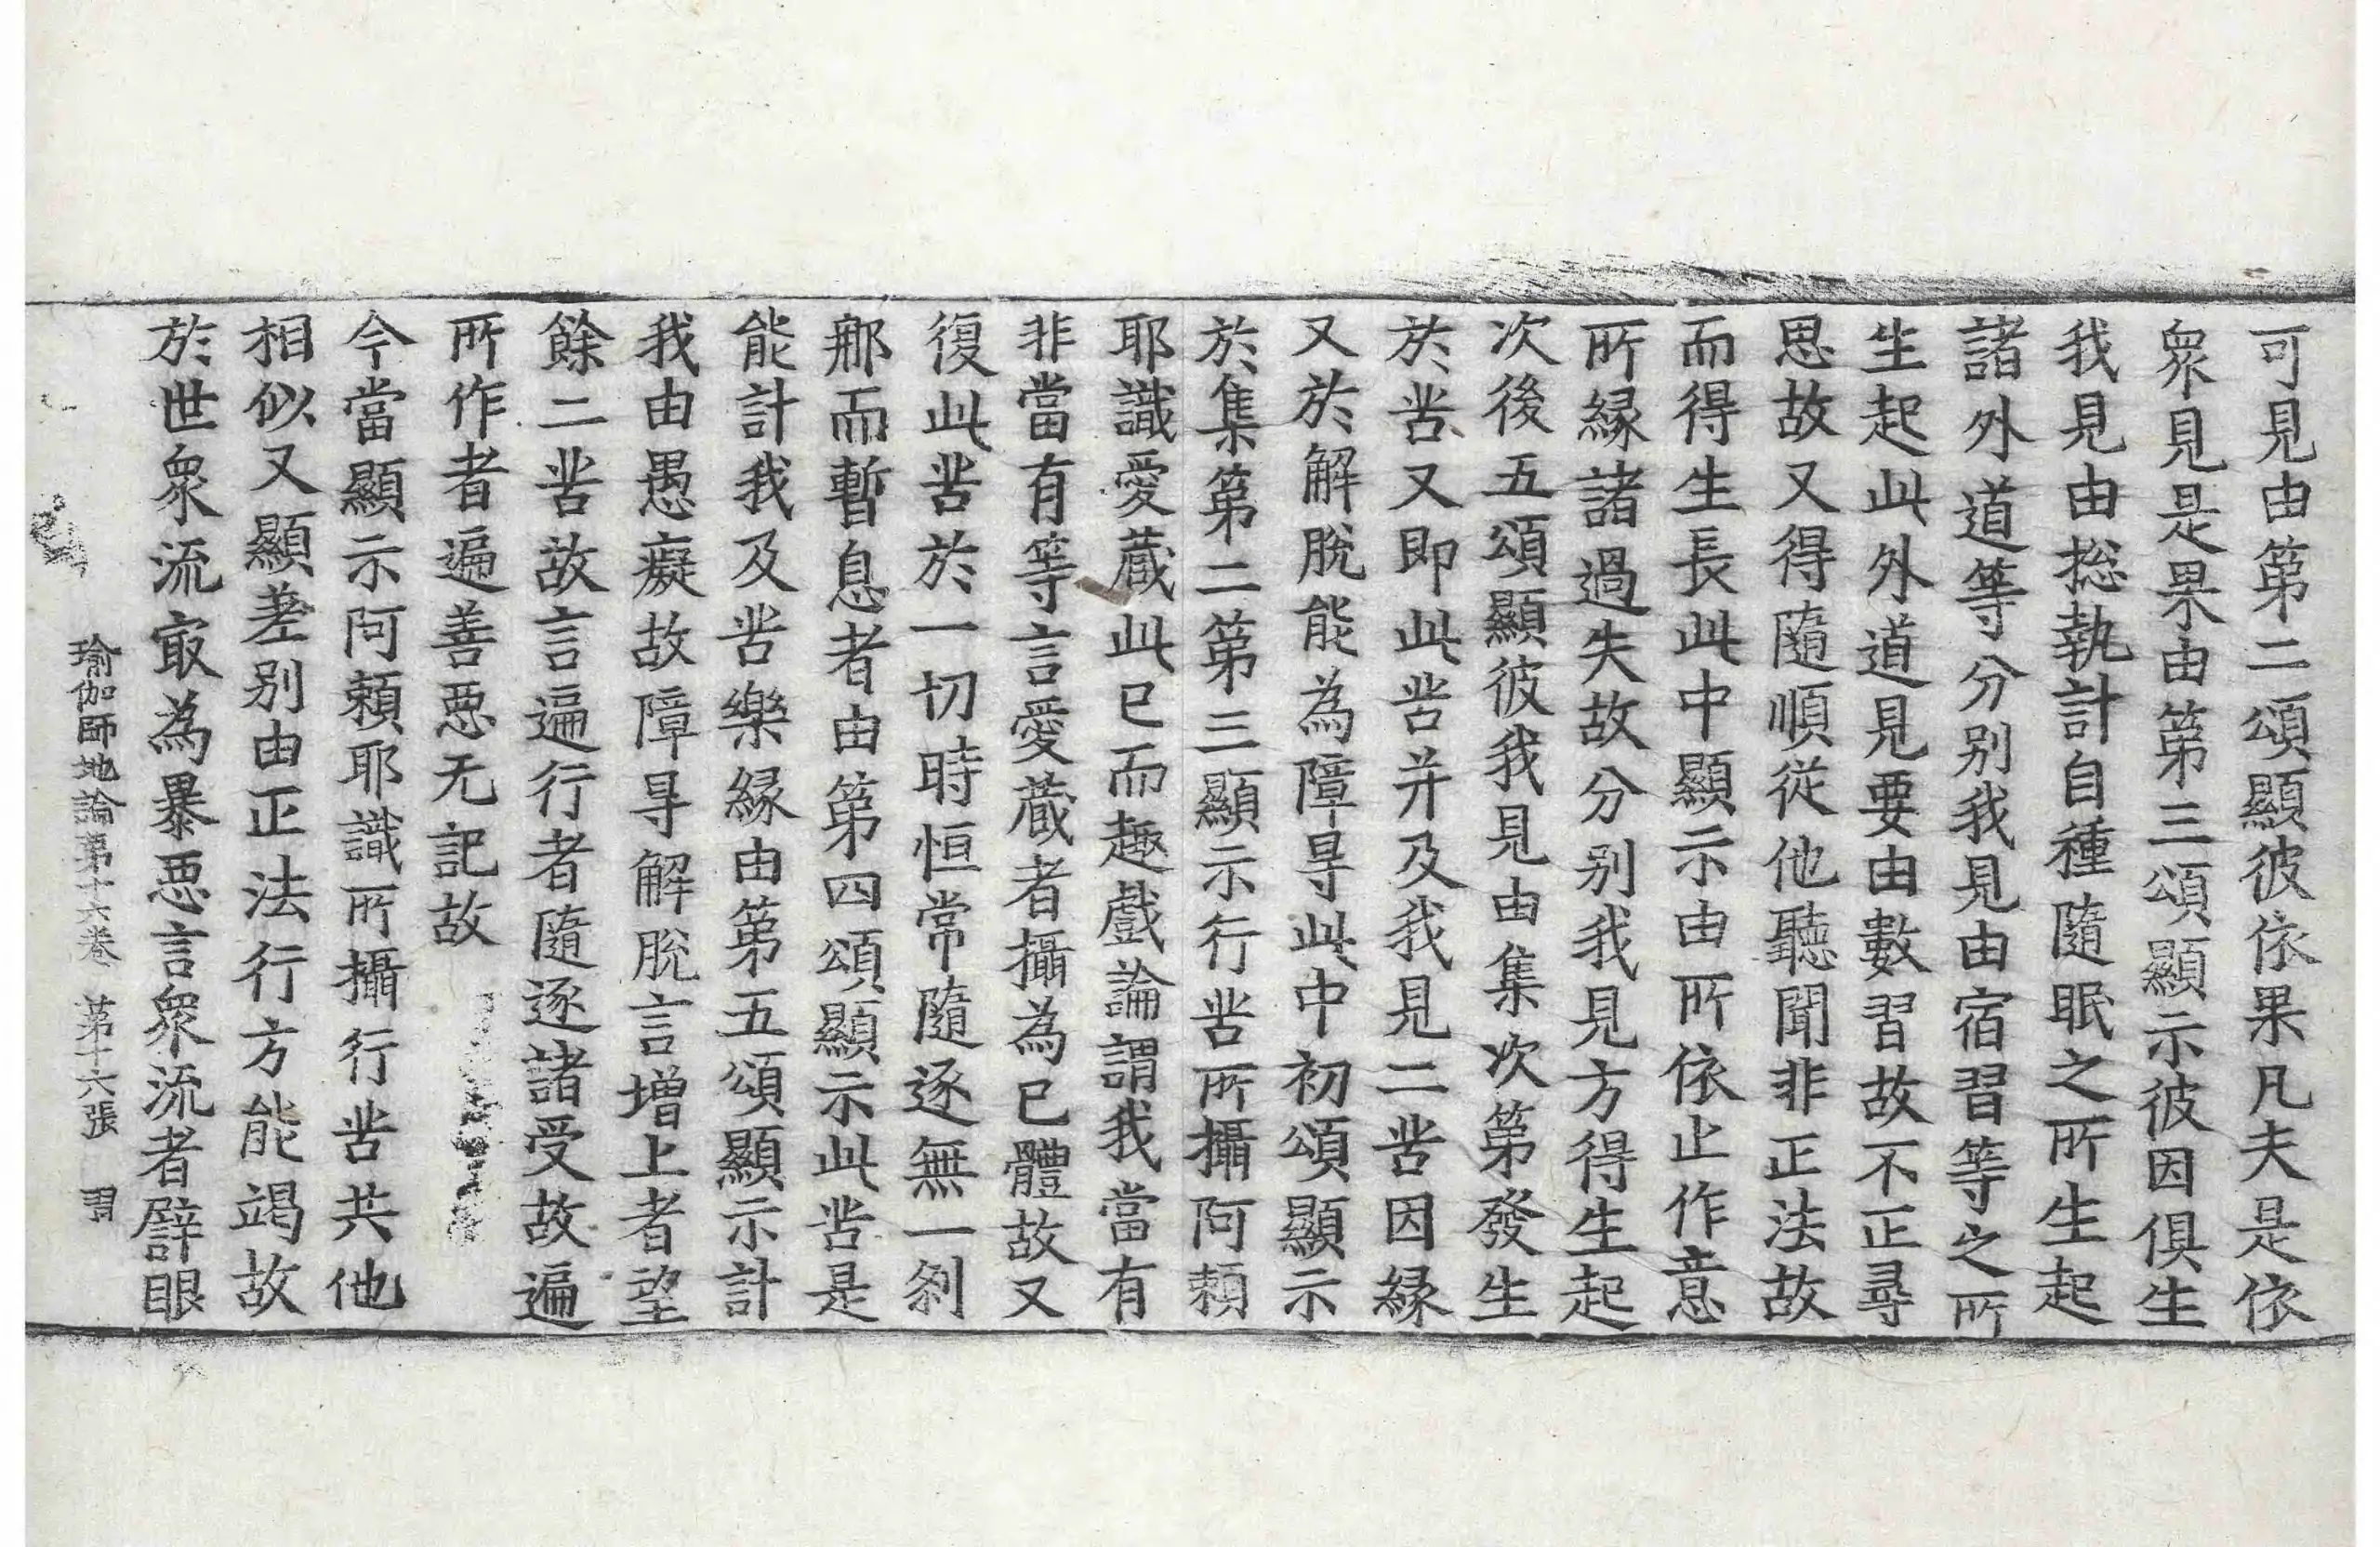 可見由第二頌顯彼依果凡夫是依
衆見是果由第三頌顯示彼因俱生
我見由揔執計自種隨眠之所生起
諸外道等分別我見由宿習等之所
生起此外道見要由數習故不正尋
思故又得隨順從他聽聞非正法故
而得生長此中顯示由所依止作意
所緣諸過失故分別我見方得生起
次後五頌顯彼我見由集次第發生
於苦又即此苦并及我見二苦因緣
又於解脫能為障㝵此中初頌顯示
於集第二第三顯示行苦所攝阿賴
耶識愛蔵此已而趣戲論謂我當有
非當有等言愛蔵者攝為已體故又
復此苦於一切時恒常隨逐無一刹
那而暫息者由第四頌顯示此苦是
能計我及苦樂緣由第五頌顯示計
我由愚癡故障㝵解脫言增上者望
餘二苦故言遍行者隨逐諸受故遍
所作者遍善惡无記故
今當顯示阿賴耶識所攝行苦共他
相似又顯差別由正法行方能竭故
於世衆流㝡為暴惡言衆流者辟眼
瑜伽師地論第十六卷 第十六張